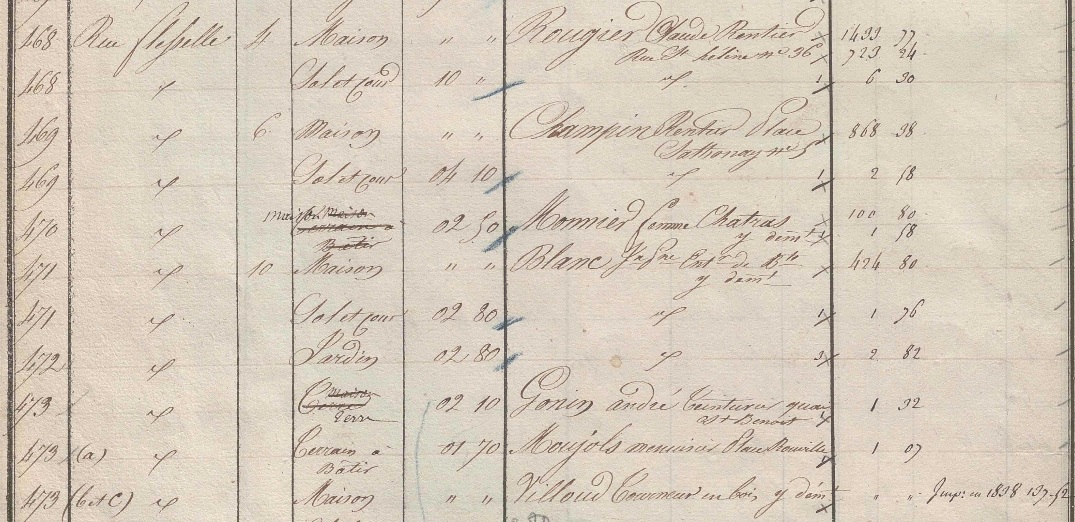 468 Rue flesselle 4 Maison " " Rougier Claude Rentier 1499 77
Rue St hélène n° 36 723 24
468 " Sol et Cour 10 " " 1 6 30
469 " 6 Maison " " Champin Rentier Place 868 98
Sathonay n° 5
469 " Sol et cour 04 10 " 1 2 58
maison Maison 100 80
470 " Terrain à 02 50 Monnier femme Chatras
Bâtir y demt 1 1 58
471 " 10 Maison " " Blanc Entr de Bts 424 80
y demt
471 " Sol et cour 02 80 " 1 1 76
472 " Jardin 02 80 " 3 2 82
maison
473 " 02 10 Gonin andré Teinturier quai 1 32
Terre St Benoit
473 (a) " Terrain à 01 70 Moujols menuisier Place Rouville 1 07
Bâtir
473 (b et C) " Maison " " Villoud Tourneur en bois y demt " " Imp. en 1838